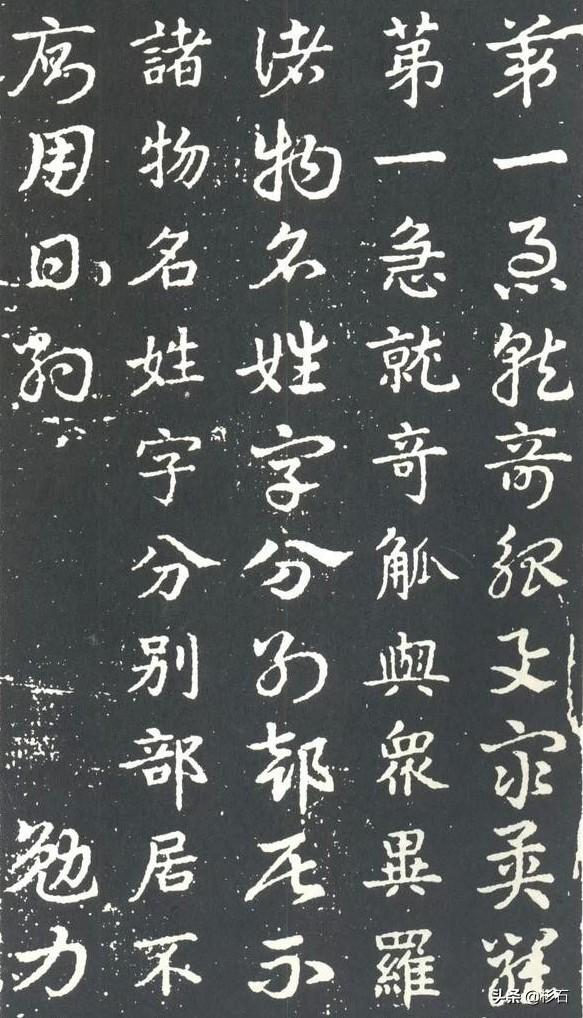 第一急就奇觚與衆異羅
第一急就奇觚與衆異羅
諸物名姓字分别部居不
諸物名姓字分别部居不
雜厠用日約 勉力
头条 @杉石